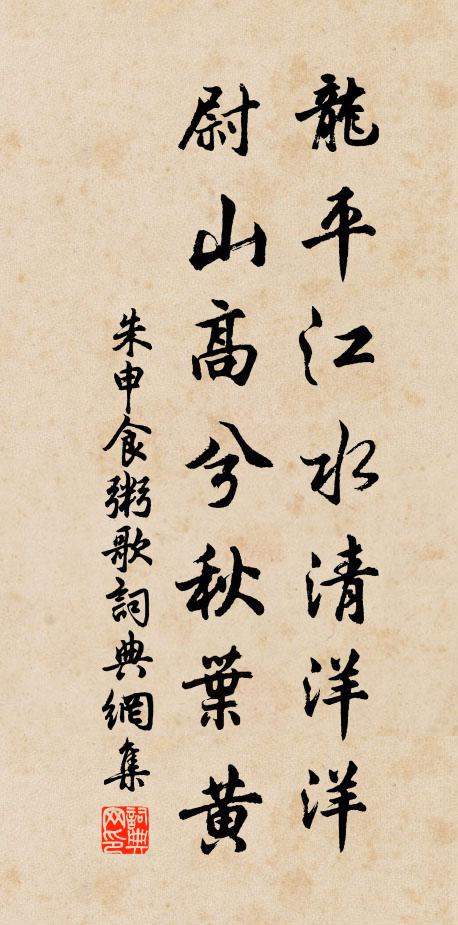 龍平江水清洋洋
尉山高兮秋葉黃
朱申食粥歌詞典網集
詞典網印